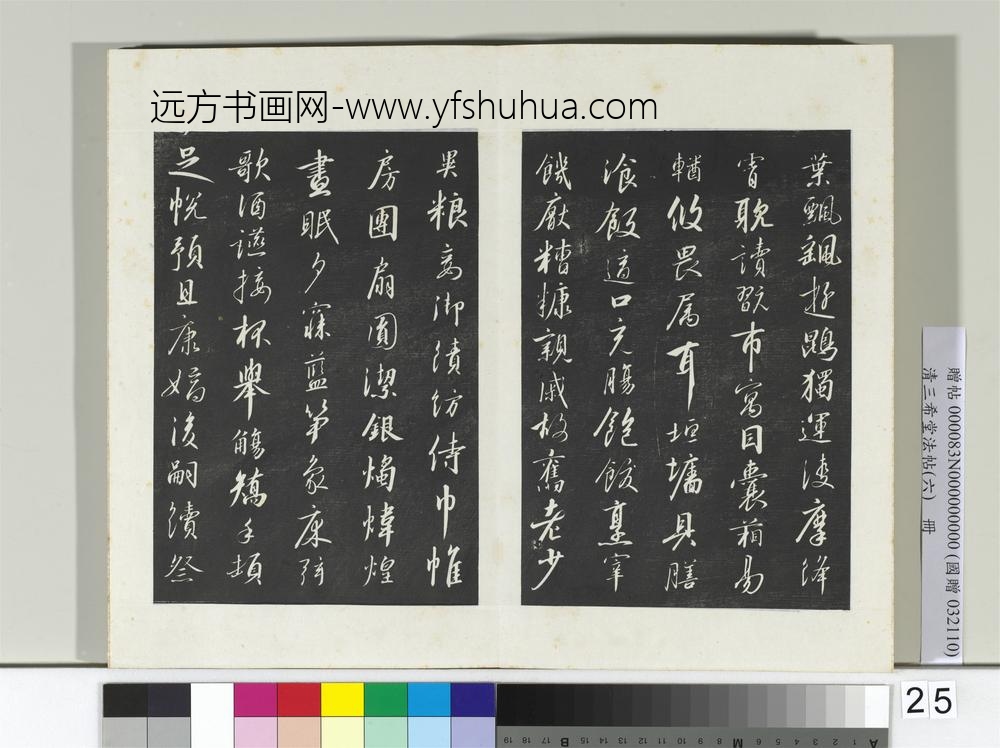 远方书画网-www.yfshuhua.com
葉飄颻遊鵾獨運凌摩絳
霄耽讀翫市寓目囊箱易
輶攸畏属耳垣墻具膳
飡飯適口充腸飽飫烹宰
饑厭糟糠親戚故舊老少
異粮妾御績紡侍巾帷
房團扇圓潔銀燭煒煌
晝眠夕寐藍笋象床弦
歌酒讌接杯舉觴矯手頓
足悅預且康嫡後嗣續祭
贈帖 000083N000000000 (國贈 032110)
清三希堂法帖(六) 冊
25